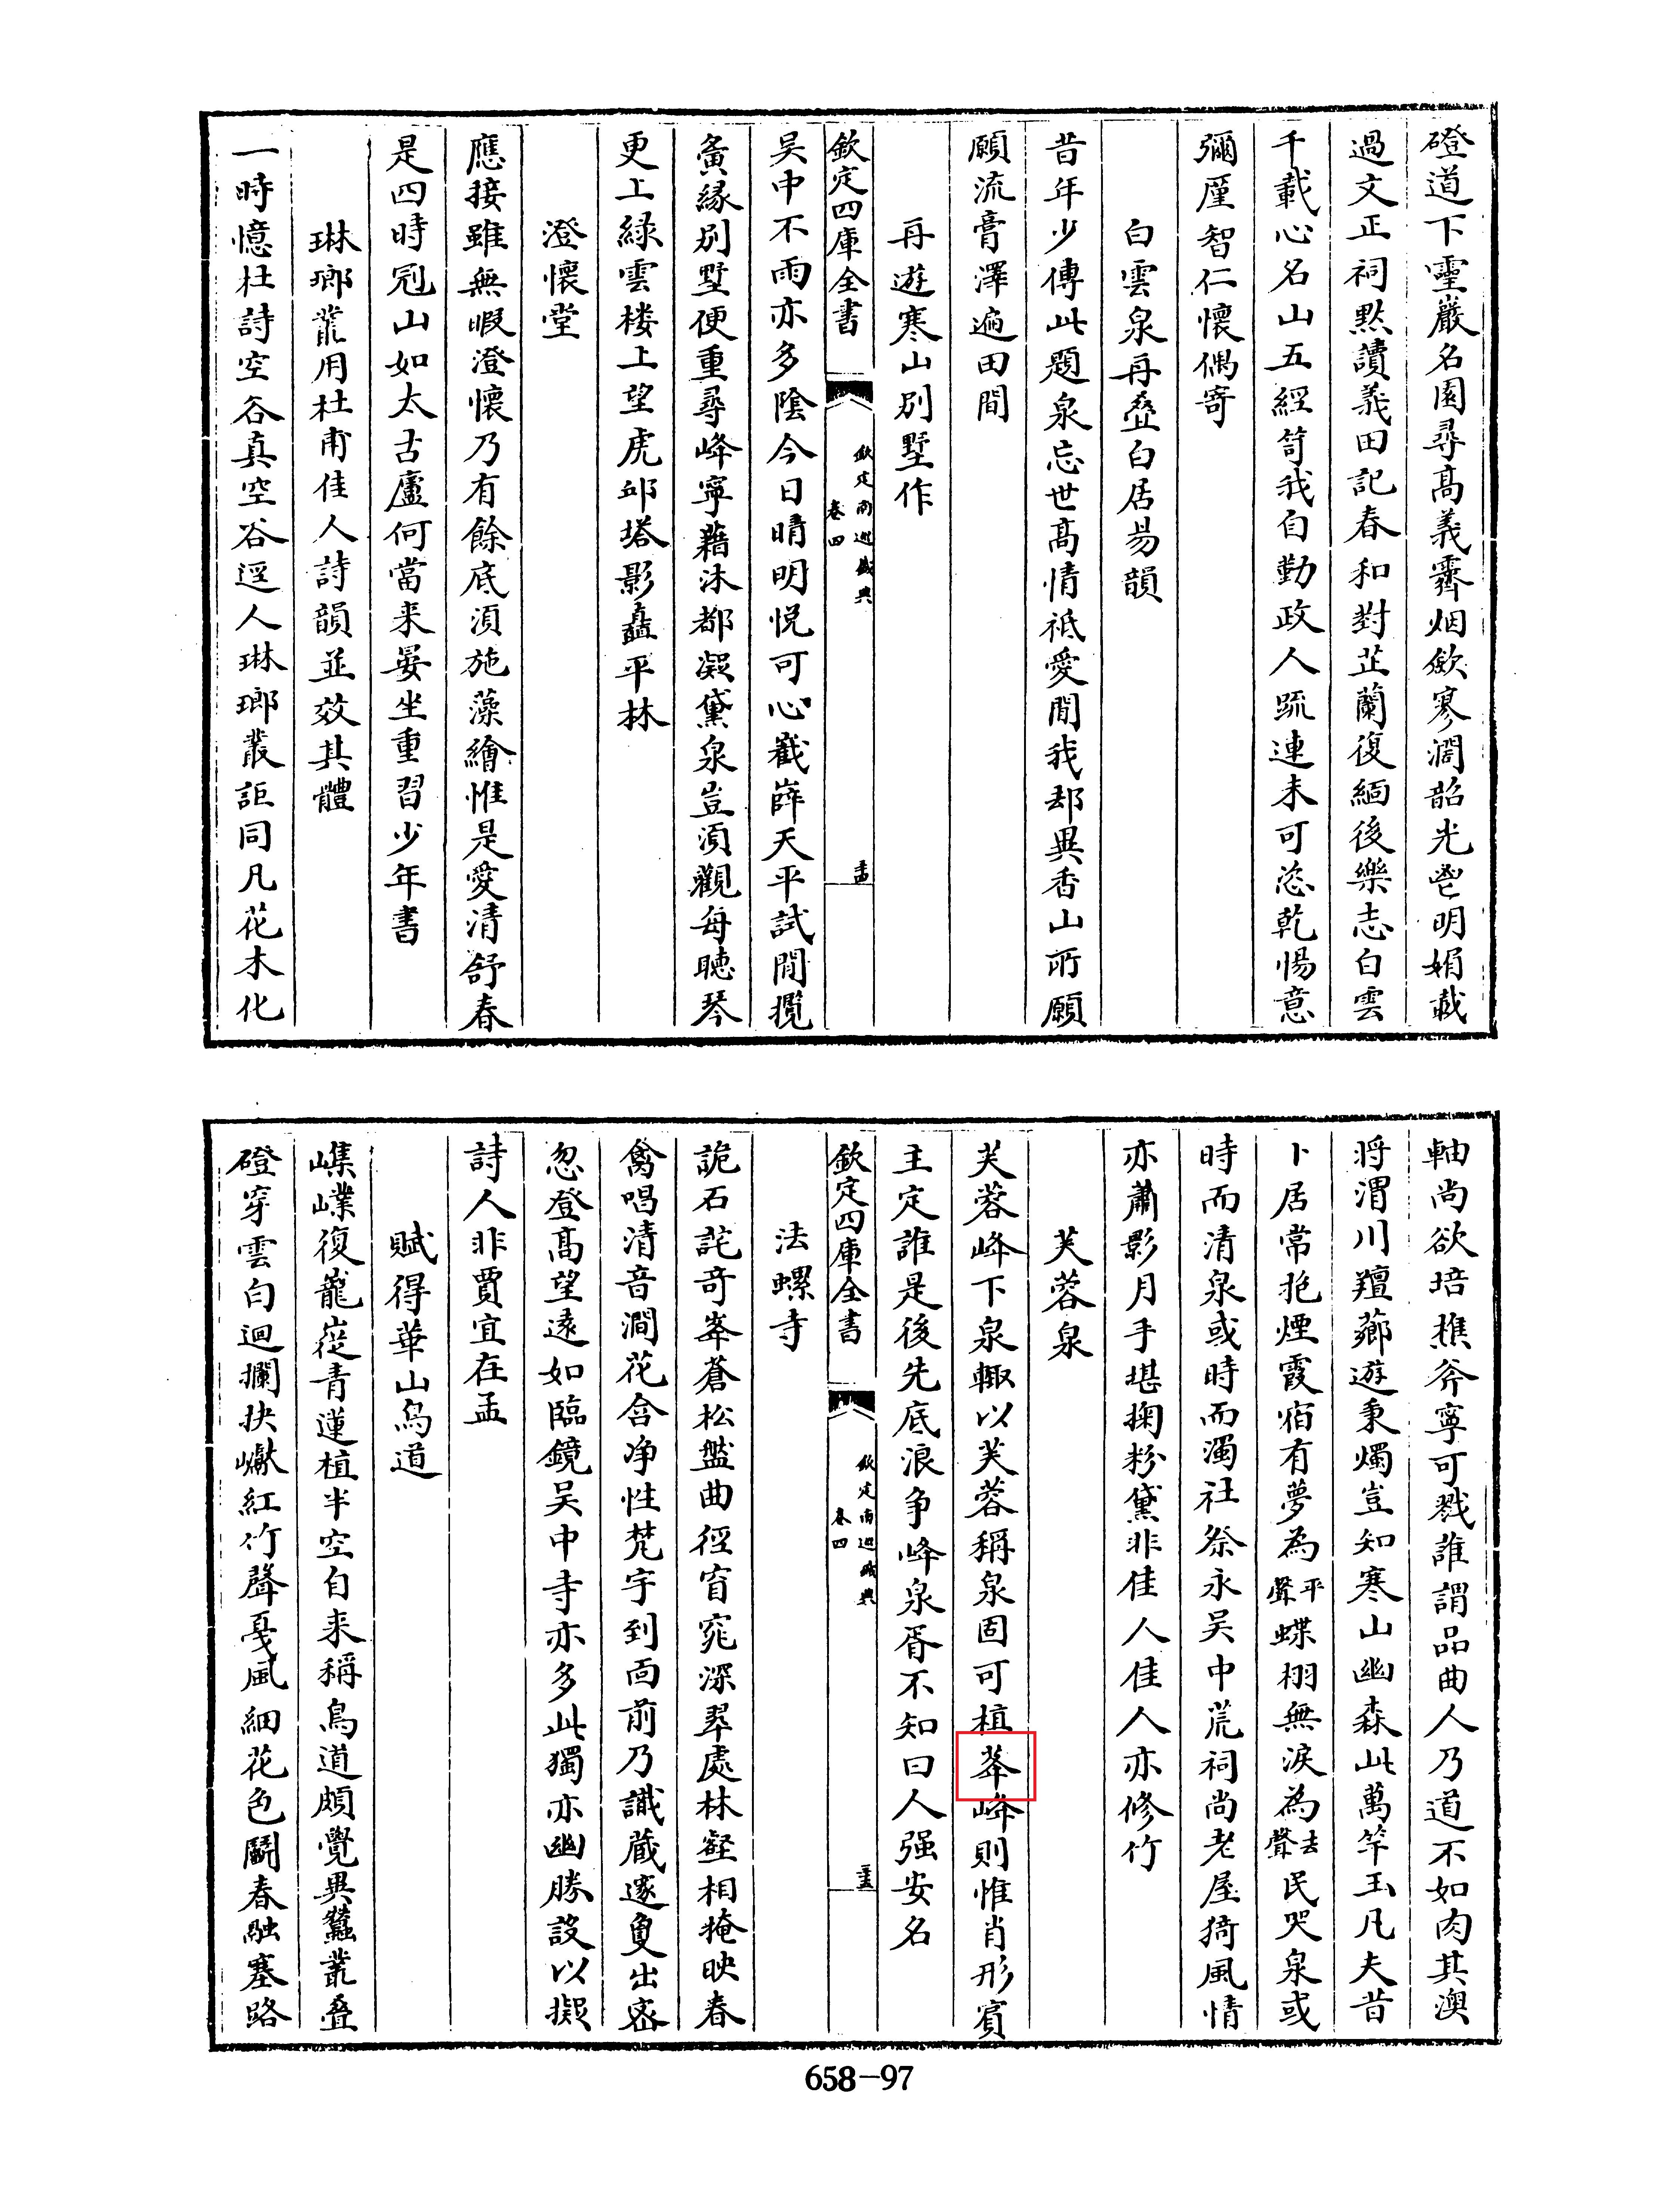 磴道下靈巖名園尋髙義霽烟歛寥濶韶光鬯明娟載
過文正祠㸃讀義田記春和對芷蘭復緬後樂志白雲
千載心名山五經笥我自勤政人䟽連未可恣乾惕意
彌厪智仁懷偶寄
白雲泉再叠白居易韻
昔年少傅此題泉忘世髙情祗愛閒我却異香山所願
願流膏澤遍田間
再遊寒山别墅作
欽定四庫全書
欽定南巡盛典
卷四
吴中不雨亦多陰今日晴明悦可心巀嶭天平試閒攬
夤縁别墅便重尋峰寧藉沐都凝黛泉豈湏觀每聴琴
更上緑雲楼上望虎邱塔影矗平林
澄懷堂
應接雖無暇澄懷乃有餘底湏施藻繪惟是愛清舒春
是四時冠山如太古廬何當来晏坐重習少年書
琳瑯叢用杜甫佳人詩韻並效其體
一時憶杜詩空谷真空谷逕人琳瑯叢詎同凡花木化
軸尚欲培樵斧寧可戮誰謂品曲人乃道不如肉其澳
将渭川羶薌遊秉燭豈知寒山幽森此萬竿玉凡夫昔
卜居常抱煙霞宿有夢為平聲蝶栩無淚為去聲民哭泉或
時而清泉或時而濁社祭永吴中荒祠尚老屋猗風情
亦蕭影月手堪掬粉黛非佳人佳人亦修竹
芙蓉泉
芙蓉峰下泉輙以芙蓉稱泉固可植莑峰則惟肖形賓
主定誰是後先底浪争峰泉胥不知曰人强安名
欽定四庫全書
欽定南巡盛典
卷四
法螺寺
詭石詫竒峯蒼松盤曲徑窅窕深翠處林壑相掩映春
禽唱清音澗花含净性梵宇到面前乃識蔵邃夐出宻
忽登髙望逺如臨鏡吴中寺亦多此獨亦幽勝設以擬
詩人非賈宜在孟
賦得華山鳥道
嶫嶪復巃嵸青蓮植半空自来稱鳥道頗覺異蠶叢叠
磴穿雲白迴攔抉巘紅竹聲戞風細花色鬬春融塞路
658-97